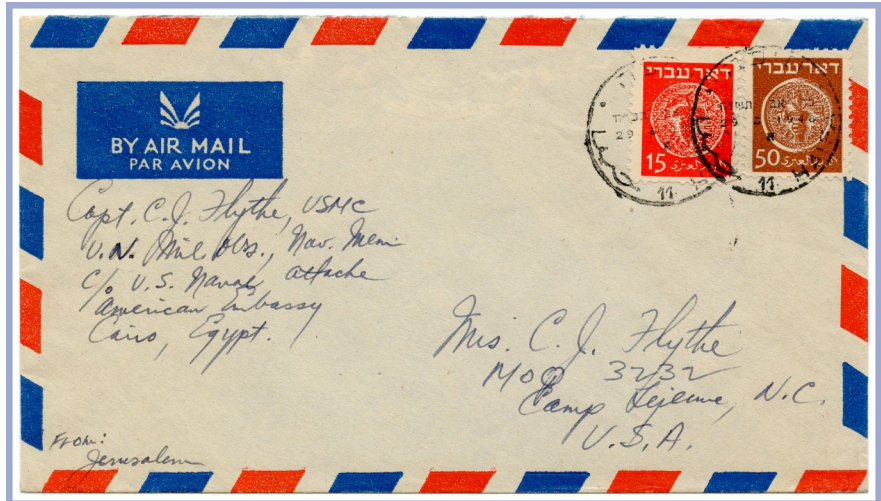 BY AIR MAIL
PAR AVION
דאר עברי
15
דאר עברי
50
Capt. C. J. Flythe, USMC
U.N. Mil. Obs., Nav. Mem
C/o U.S. Naval attache
American Embassy
Cairo, Egypt.
Mrs. C. J. Flythe
MOQ 3232
Camp Lejeune, N.C.
U.S.A.
From:
Jerusalem